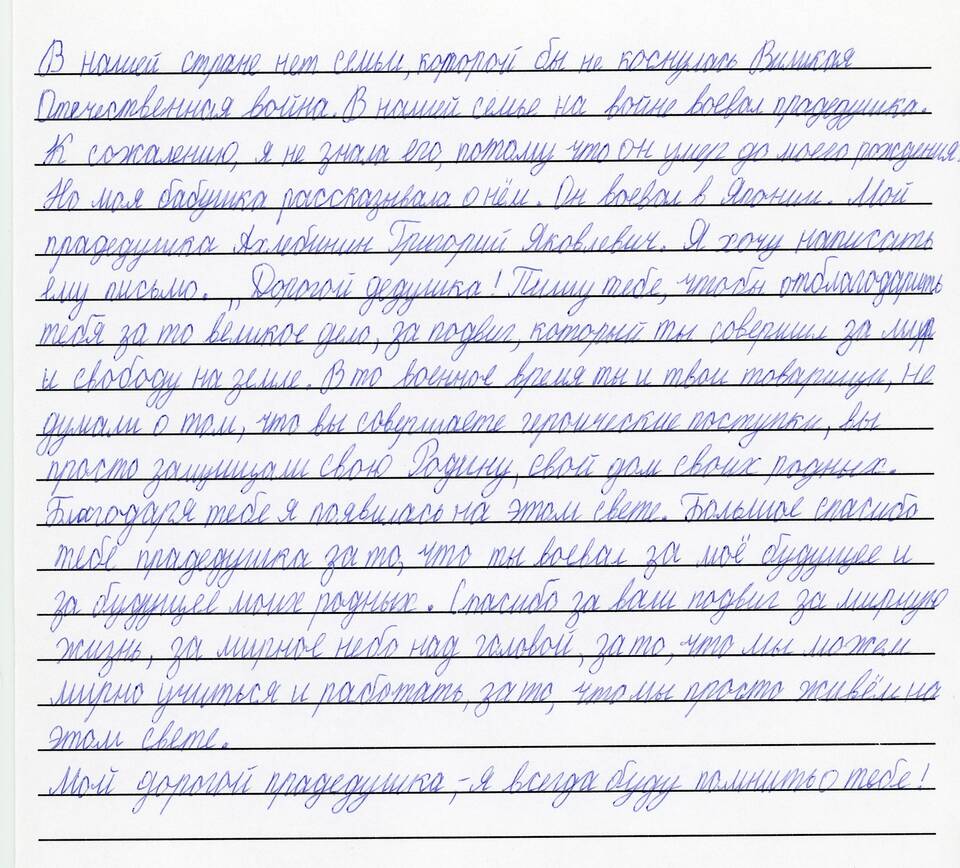 В нашей стране нет семьи, которой бы не коснулась Виликая
Отечественная война. В нашей семье на войне воевал прадедушка.
К сожалению, я не знала его, потому что он умер до моего рождения.
Но моя бабушка рассказывала о нём. Он воевал в Японии. Мой
прадедушка Ахлебинин Григорий Яковлевич. Я хочу написать
ему письмо. „Дорогой дедушка! Пишу тебе, чтобы отблагодарить
тебя за то великое дело, за подвиг, который ты совершил за мир
и свободу на земле. В то военное время ты и твои товарищи, не
думали о том, что вы совершаете героические поступки, вы
просто защищали свою Родину, свой дом своих родных.
Благодаря тебе я появилась на этом свете. Большое спасибо
тебе прадедушка за то, что ты воевал за моё будущее и
за будущее моих родных. Спасибо за ваш подвиг за мирную
жизнь, за мирное небо над головой, за то, что мы можем
мирно учиться и работать, за то, что мы просто живём на
этом свете.
Мой дорогой прадедушка,- я всегда буду помнить о тебе!